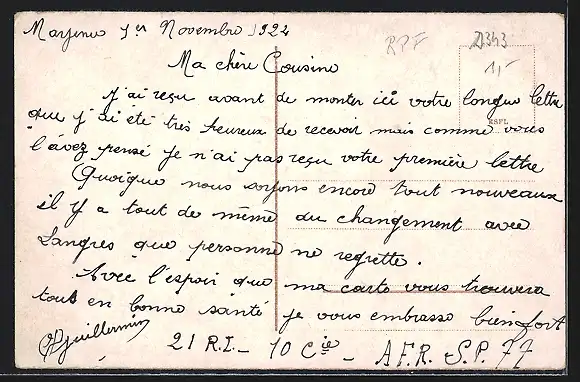 Mayence 1er Novembre 1922
RPF
2343
15-
Ma chère Cousine
J'ai reçu avant de monter ici votre longue lettre
que j'ai été très heureux de recevoir mais comme vous
l'avez pensé je n'ai pas reçu votre première lettre
Quoique nous soyons encore tout nouveaux
il y a tout de même du changement avec
Langres que personne ne regrette.
Avec l'espoir que ma carte vous trouvera
tous en bonne santé je vous embrasse bien fort
Guillermin
21 R.I. - 10 Cie - A.F.R. S.P. 77